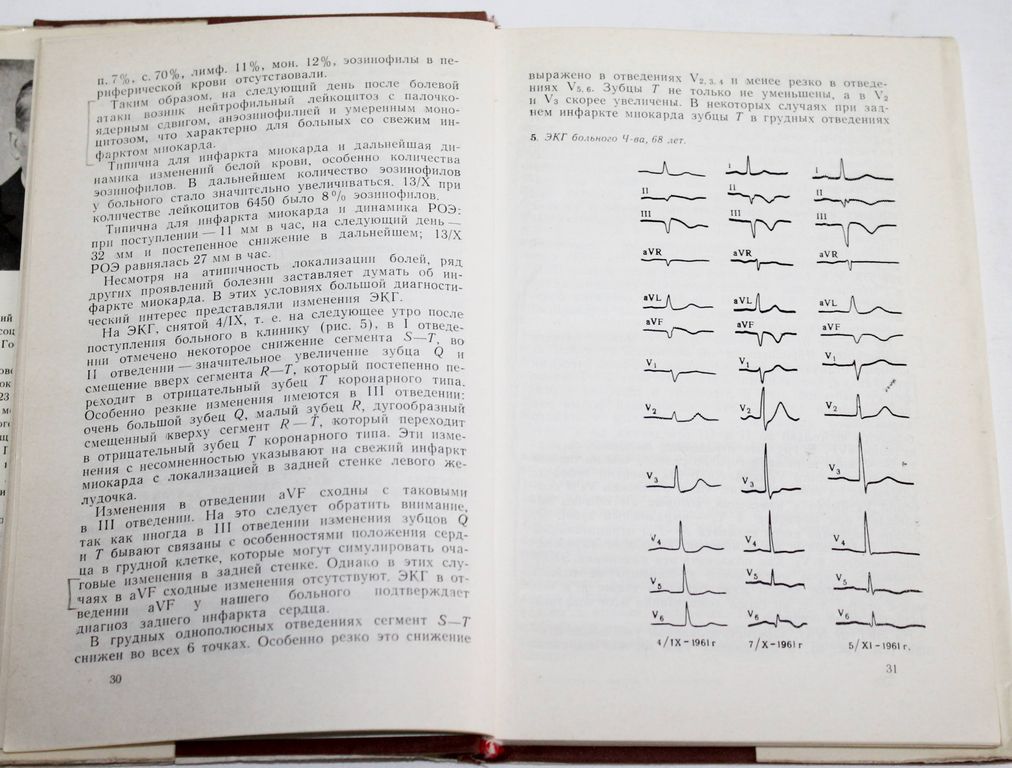 п. 7%, с. 70%, лимф. 11%, мон. 12%, эозинофилы в пе-
риферической крови отсутствовали.
Таким образом, на следующий день после болевой
атаки возник нейтрофильный лейкоцитоз с палочко-
ядерным сдвигом, анэозинофилией и умеренным моно-
цитозом, что характерно для больных со свежим ин-
фарктом миокарда.
Типична для инфаркта миокарда и дальнейшая ди-
намика изменений белой крови, особенно количества
эозинофилов. В дальнейшем количество эозинофилов
у больного стало значительно увеличиваться. 13/X при
количестве лейкоцитов 6450 было 8% эозинофилов.
Типична для инфаркта миокарда и динамика РОЭ:
при поступлении — 11 мм в час, на следующий день —
32 мм и постепенное снижение в дальнейшем; 13/X
РОЭ равнялась 27 мм в час.
Несмотря на атипичность локализации болей, ряд
других проявлений болезни заставляет думать об ин-
фаркте миокарда. В этих условиях большой диагности-
ческий интерес представляли изменения ЭКГ.
На ЭКГ, снятой 4/IX, т. е. на следующее утро после
поступления больного в клинику (рис. 5), в I отведе-
нии отмечено некоторое снижение сегмента S—T, во
II отведении — значительное увеличение зубца Q и
смещение вверх сегмента R—T, который постепенно пе-
реходит в отрицательный зубец T коронарного типа.
Особенно резкие изменения имеются в III отведении:
очень большой зубец Q, малый зубец R, дугообразный
смещенный кверху сегмент R—T, который переходит
в отрицательный зубец T коронарного типа. Эти изме-
нения с несомненностью указывают на свежий инфаркт
миокарда с локализацией в задней стенке левого же-
лудочка.
Изменения в отведении aVF сходны с таковыми
в III отведении. На это следует обратить внимание,
так как иногда в III отведении изменения зубцов Q
и T бывают связаны с особенностями положения серд-
ца в грудной клетке, которые могут симулировать оча-
говые изменения в задней стенке. Однако в этих слу-
чаях в aVF сходные изменения отсутствуют. ЭКГ в от-
ведении aVF у нашего больного подтверждает
диагноз заднего инфаркта сердца.
В грудных однополюсных отведениях сегмент S—T
снижен во всех 6 точках. Особенно резко это снижение
30
выражено в отведениях V2, 3, 4 и менее резко в отведе-
ниях V5, 6. Зубцы T не только не уменьшены, а в V2
и V3 скорее увеличены. В некоторых случаях при зад-
нем инфаркте миокарда зубцы T в грудных отведениях
5. ЭКГ больного Ч-ва, 68 лет.
I I
II II II
III III III
aVR aVR aVR
aVL aVL aVL
aVF aVF aVF
V1 V1 V1
V2 V2 V2
V3 V3 V3
V4 V4 V4
V5 V5 V5
V6 V6 V6
4/IX-1961 г 7/X-1961 г 5/XI-1961 г.
31